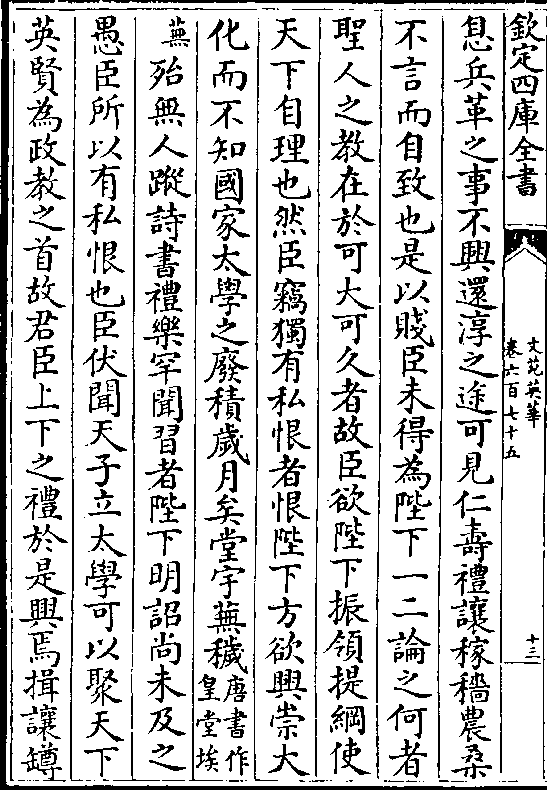 欽定四庫全書
文苑英華
卷六百七十五
十三
息兵革之事不興還淳之途可見仁壽禮讓稼穡農桑
不言而自致也是以賤臣未得為陛下一二論之何者
聖人之教在於可大可久者故臣欲陛下振領提綱使
天下自理也然臣竊獨有私恨者恨陛下方欲興崇大
化而不知國家太學之廢積歲月矣堂宇蕪穢唐書作皇堂埃
蕪殆無人蹤詩書禮樂罕聞習者陛下明詔尚未及之
愚臣所以有私恨也臣伏聞天子立太學可以聚天下
英賢為政教之首故君臣上下之禮於是興焉揖讓罇